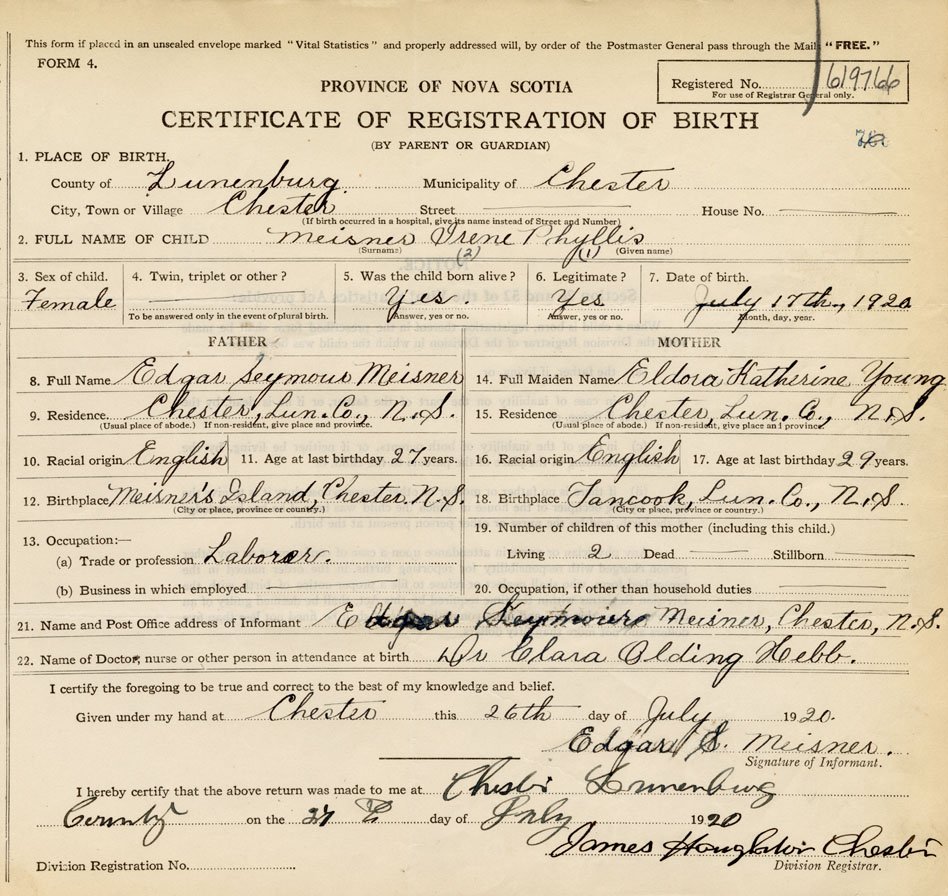 This form if placed in an unsealed envelope marked "Vital Statistics" and properly addressed will, by order of the Postmaster General pass through the Mail "FREE."
FORM 4.
Registered No. 619766
For use of Registrar General only.
PROVINCE OF NOVA SCOTIA
CERTIFICATE OF REGISTRATION OF BIRTH
(BY PARENT OR GUARDIAN)
1. PLACE OF BIRTH.
County of Lunenburg. Municipality of Chester
City, Town or Village Chester Street House No.
(If birth occurred in a hospital, give its name instead of Street and Number)
2. FULL NAME OF CHILD Meisner Irene Phyllis
(Surname) (2) (1) (Given name)
3. Sex of child. 4. Twin, triplet or other? 5. Was the child born alive? 6. Legitimate? 7. Date of birth.
Female Yes. Yes July 17th, 1920
To be answered only in the event of plural birth. Answer, yes or no. Answer, yes or no. Month, day, year.
FATHER MOTHER
8. Full Name Edgar Seymour Meisner 14. Full Maiden Name Eldora Katherine Young
9. Residence. Chester, Lun. Co., N.S. 15. Residence Chester, Lun. Co., N.S.
(Usual place of abode.) If non-resident, give place and province. (Usual place of abode.) If non-resident, give place and province
10. Racial origin English 11. Age at last birthday 27 years. 16. Racial origin English 17. Age at last birthday 29 years.
12. Birthplace Meisner's Island, Chester N.S. 18. Birthplace Tancook, Lun. Co., N.S.
(City or place, province or country.) (City or place, province or country.)
13. Occupation:— 19. Number of children of this mother (including this child.)
(a) Trade or profession Laborer. Living 2 Dead Stillborn
(b) Business in which employed 20. Occupation, if other than household duties
21. Name and Post Office address of Informant Edgar Seymour Meisner, Chester, N.S.
22. Name of Doctor, nurse or other person in attendance at birth Dr Clara Olding Hebb.
I certify the foregoing to be true and correct to the best of my knowledge and belief.
Given under my hand at Chester this 26th day of July 1920.
Edgar S. Meisner.
Signature of Informant.
I hereby certify that the above return was made to me at Chester Lunenburg
County on the 27 day of July 1920
James Houghton Chester
Division Registration No. Division Registrar.